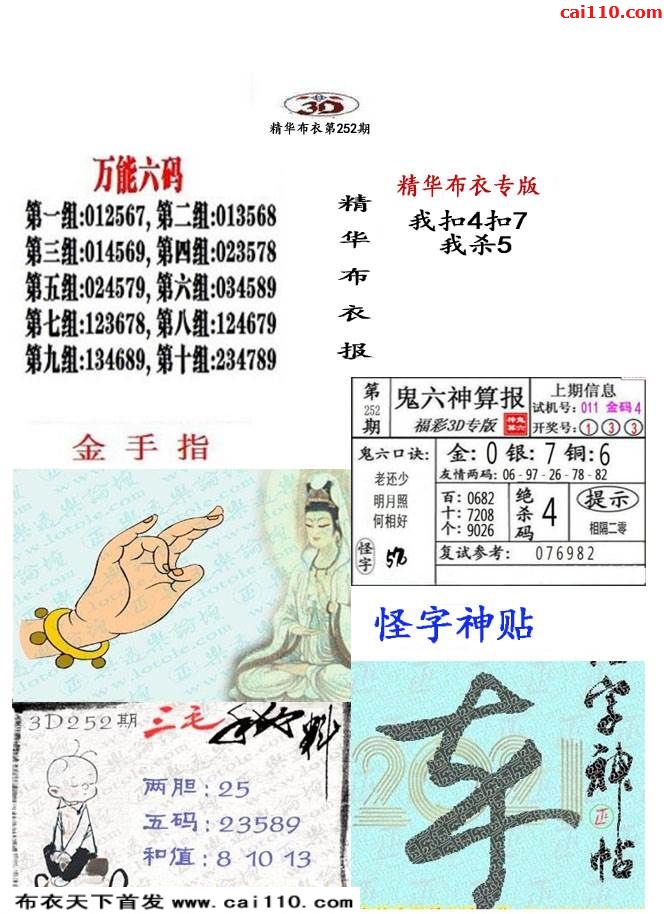 cai110.com
3D
精华布衣第252期
万能六码
第一组:012567, 第二组:013568
第三组:014569, 第四组:023578
第五组:024579, 第六组:034589
第七组:123678, 第八组:124679
第九组:134689, 第十组:234789
精华布衣报
精华布衣专版
我扣4扣7
我杀5
第252期
鬼六神算报
福彩3D专版
上期信息
试机号: 011 金码4
开奖号: ①③③
鬼六口诀:
老还少
明月照
何相好
怪字
金: 0 银: 7 铜: 6
友情两码: 06-97-26-78-82
百: 0682
十: 7208
个: 9026
绝杀码 4
提示
相隔二零
复试参考: 076982
金手指
怪字神贴
3D252期 三毛
料
两胆: 25
五码: 23589
和值: 8 10 13
2021
怪字神帖
正
布衣天下首发 www.cai110.com